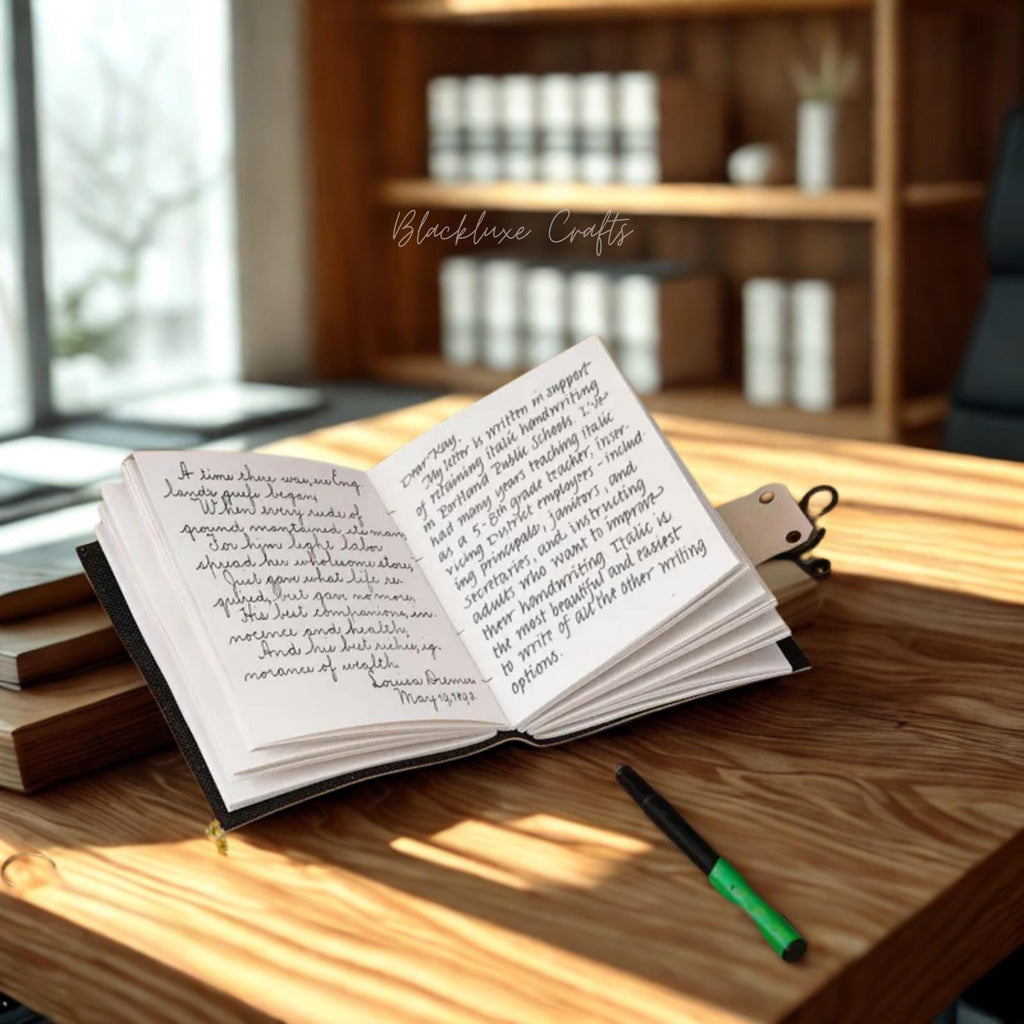 Blackluxe Crafts
A time there was, ere Eng
land's griefs began,
When every rude of
ground mantained its man,
For him light labor
spread her wholesome store,
Just gave what life re-
quired, but gave no more.
His best companions, in-
nocence and health,
And his best riches, ig-
norance of wealth.
Louisa
May 19, 1892
Dear Kay,
My letter is written in support
of retaining italic handwriting
in Portland Public Schools. I've
had many years teaching italic
as a 5-8th grade teacher, inser-
vicing District employees - includ
ing principals, janitors, and
secretaries, and instructing
adults who want to improve
their handwriting. Italic is
the most beautiful and easiest
to write of all the other writing
options.